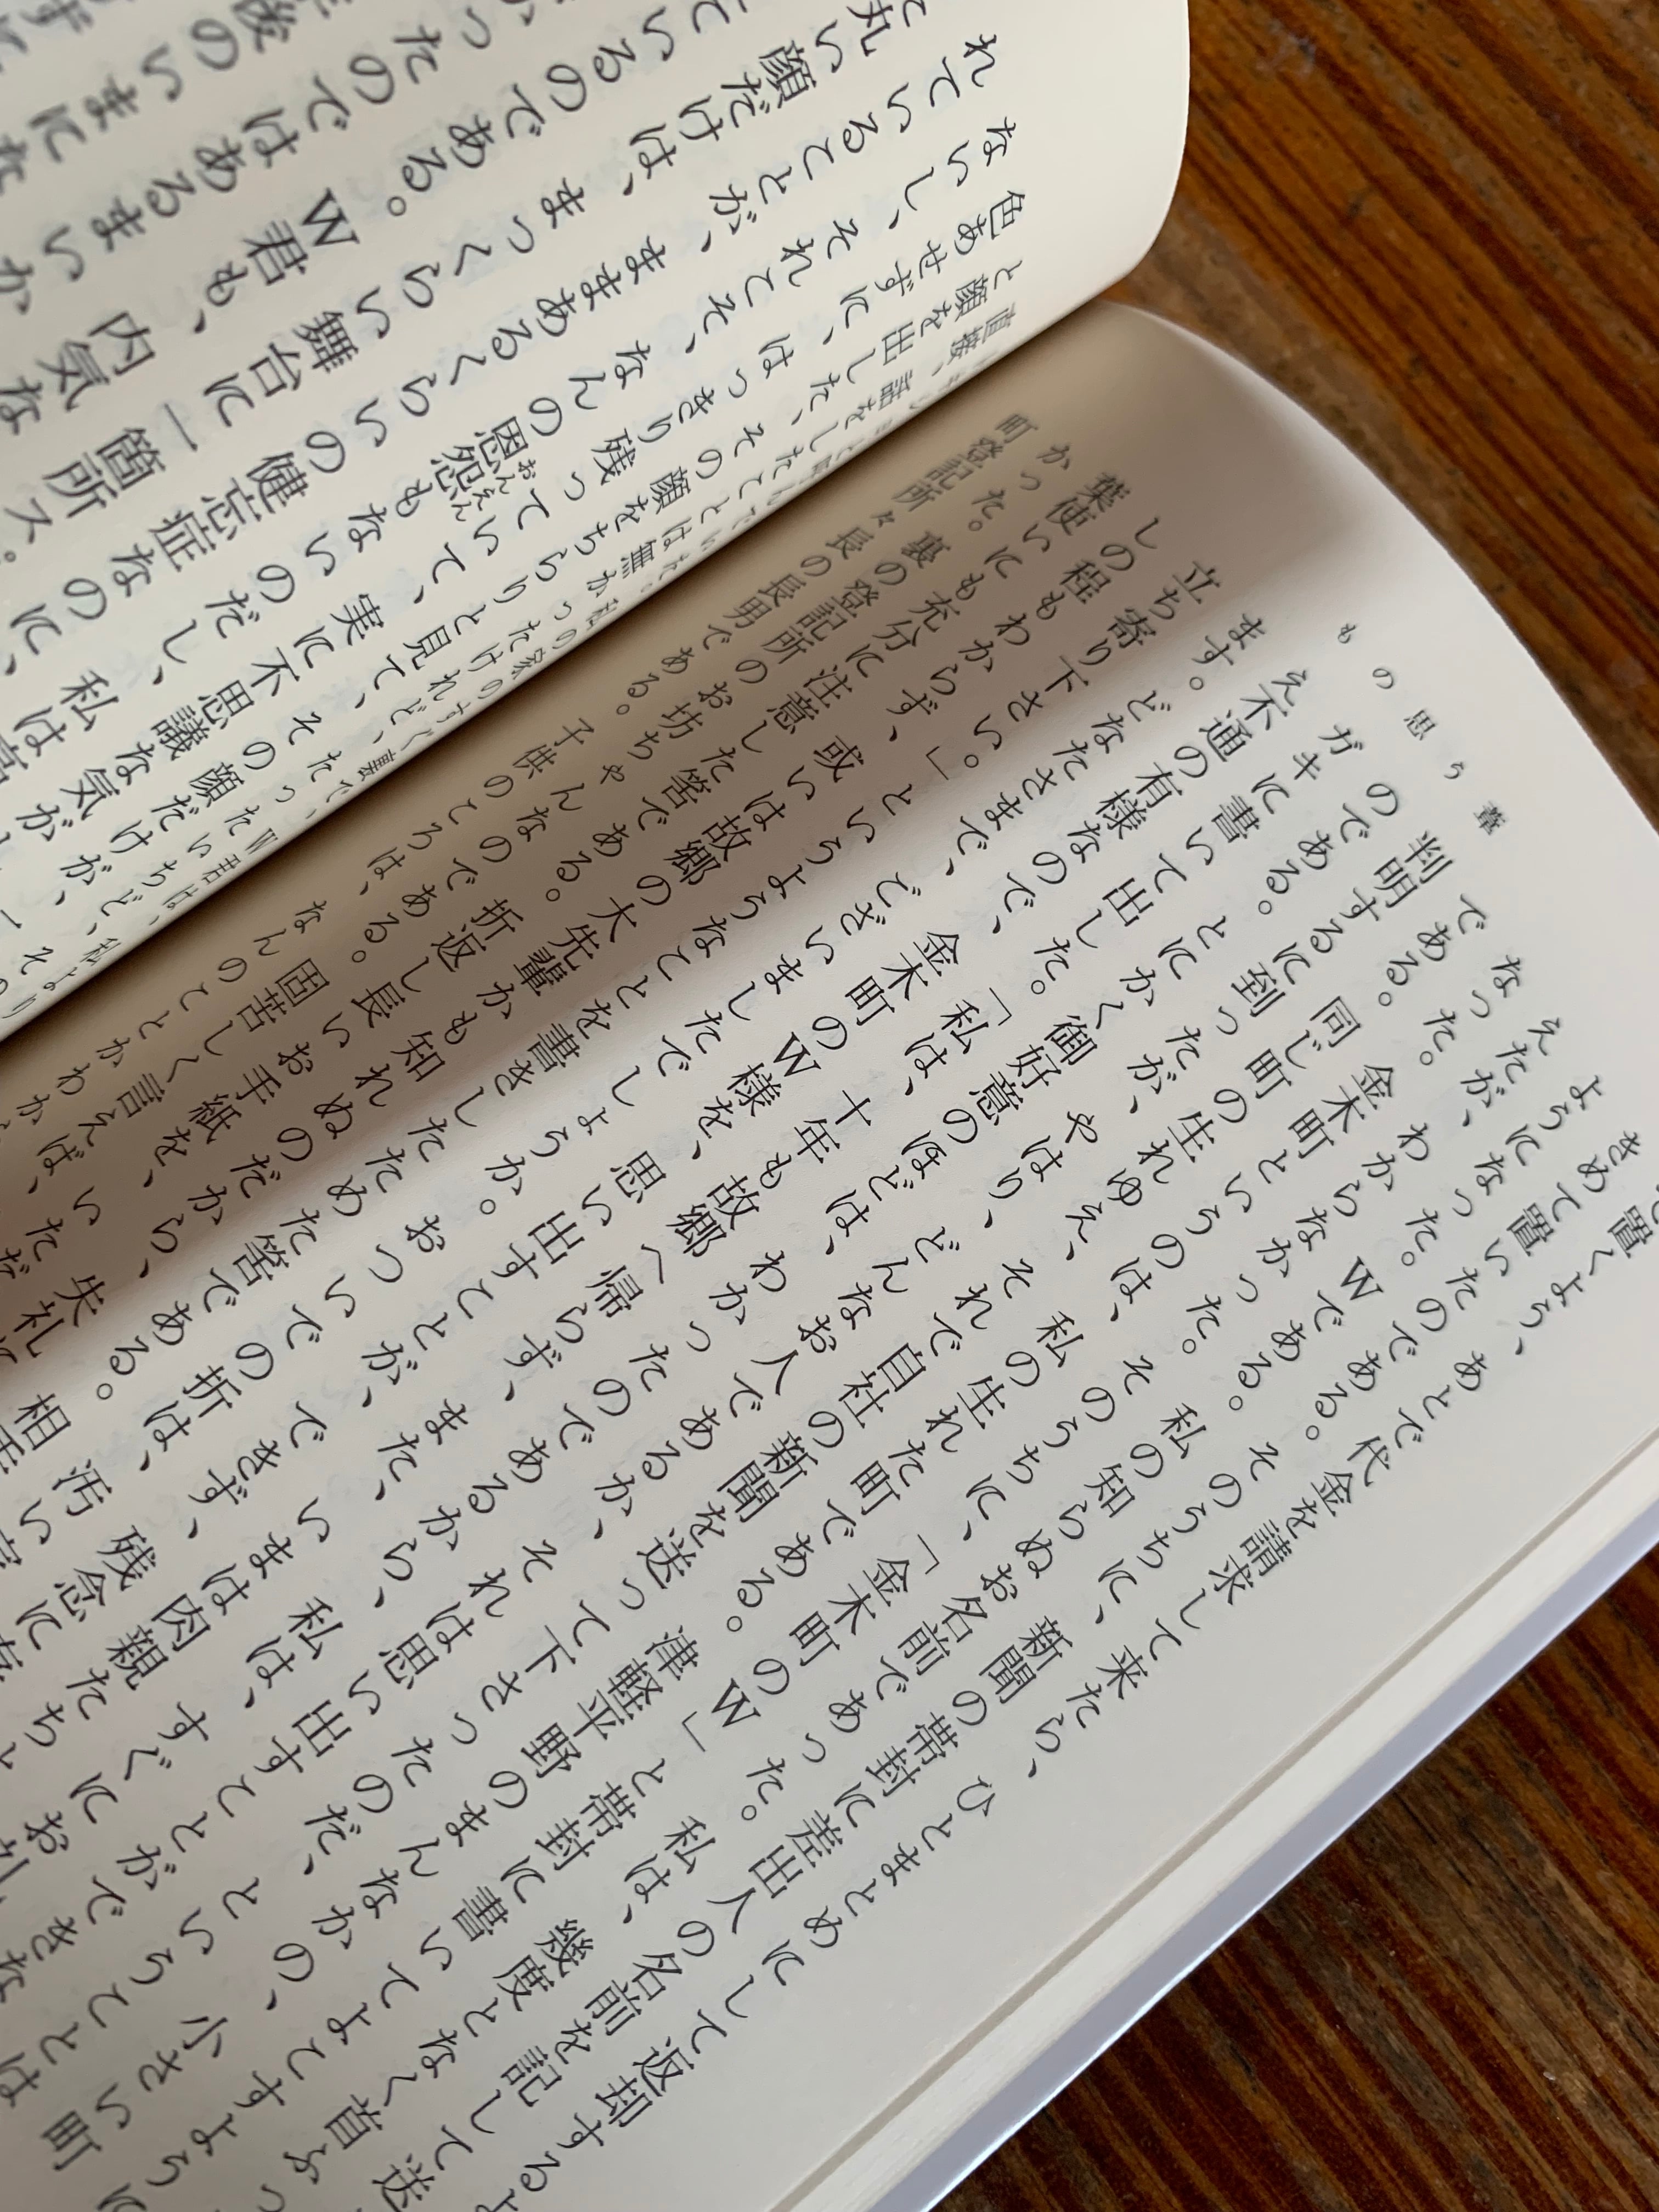 もの思う葦
置くよう、あとで代金を請求して来たら、ひとまとめにして返却するよ
きめて置いたのである。そのうちに、新聞の帯封に差出人の名前を記して送
ようになった。Wである。私の知らぬお名前であった。私は、幾度となく首ふっ
えたが、わからなかった。そのうちに、「金木町のW」と帯封に書いてよこすよう
なった。金木町というのは、私の生れた町である。津軽平野のまんなかの、小さい町
である。同じ町の生れゆえ、それで自社の新聞を送って下さったのだ、ということは
判明するに到ったが、やはり、どんなお人であるか、それは思い出すことができな
のである。とにかく御好意のほどは、わかったのであるから、私は、すぐにお
ガキに書いて出した。「私は、十年も故郷へ帰らず、また、いまは肉親たちと
え不通の有様なので、金木町のW様を、思い出すことが、できず、残念に
ます。どなたさまで、ございましたでしょうか。おついでの折は、汚い
立ち寄り下さい。」というようなことを書きしたためた筈である。相
しの程もわからず、或いは故郷の大先輩かも知れぬのだから、失礼
葉使いにも充分に注意した筈である。折返し長いお手紙を、いた
かった。裏の登記所のお坊ちゃんなのである。固苦しく言えば、
町登記所々長の長男である。子供のころは、なんのことかわか
直接、話をしたことは無かったけれど
と顔を出した、その顔をちらりと見て、その顔だけ
色あせずに、はっきり残っていて、実に不思議な気が
ないし、それこそ、なんの恩怨もないのだし、私は
れていることが、ままあるくらいの健忘症なのに、
丸い顔だけは、まっくらい舞台に一箇所ス
ているのである。W君も、内気な
たのではあるまいか
後のいまに